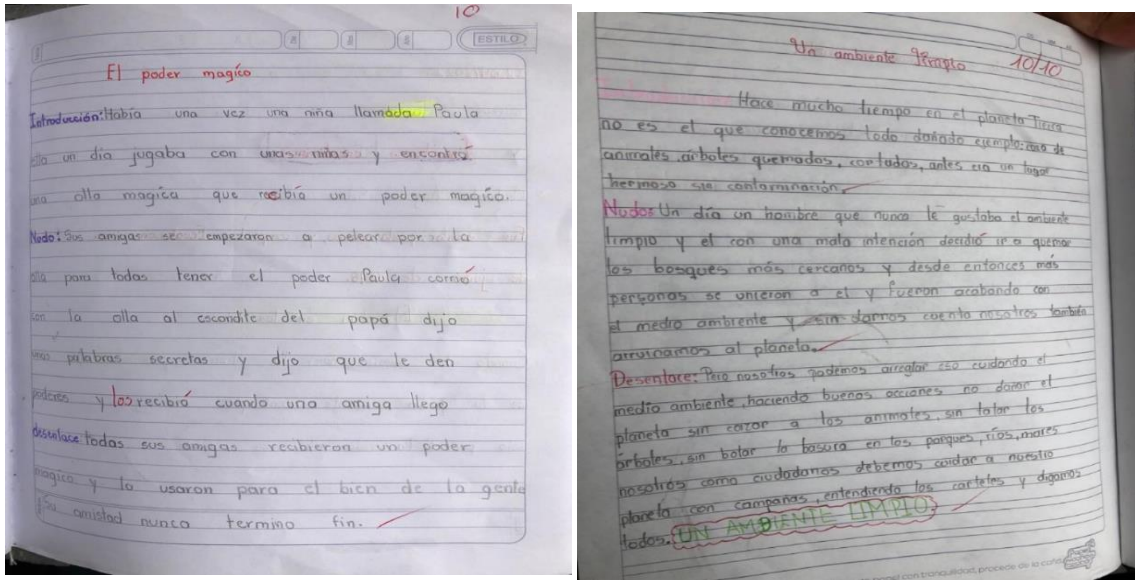 10
ESTILO
El poder magíco
Introducción: Había una vez una niña llamada Paula
ella un día jugaba con unas niñas y encontró
una olla magíca que recibía un poder magíco.
Nodo: Sus amigas se empezaron a pelear por la
olla para todas tener el poder Paula corrió
con la olla al escondite del papá dijo
unas palabras secretas y dijo que le den
poderes y los recibió cuando una amiga llego
desenlace todas sus amigas recibieron un poder
magico y lo usaron para el bien de la gente
Su amistad nunca termino fin.
Un ambiente limpio
10/10
Hace mucho tiempo en el planeta Tierra
no es el que conocemos todo dañado ejemplo: de
animales, árboles quemados, cortados, antes era un lugar
hermoso sin contaminación.
Nudo: Un día un hombre que nunca le gustaba el ambiente
limpio y el con una mala intención decidió ir a quemar
los bosques más cercanos y desde entonces más
personas se unieron a el y fueron acabando con
el medio ambiente y sin darnos cuenta nosotros también
arruinamos al planeta.
Desenlace: Pero nosotros podemos arreglar eso cuidando el
medio ambiente, haciendo buenas acciones no dañar el
planeta sin cazar a los animales, sin talar los
árboles, sin botar la basura en los parques, ríos, mares
nosotros como ciudadanos debemos cuidar a nuestro
planeta con campañas, entendiendo los carteles y digamos
todos. UN AMBIENTE LIMPIO
con tranquilidad, procede de la